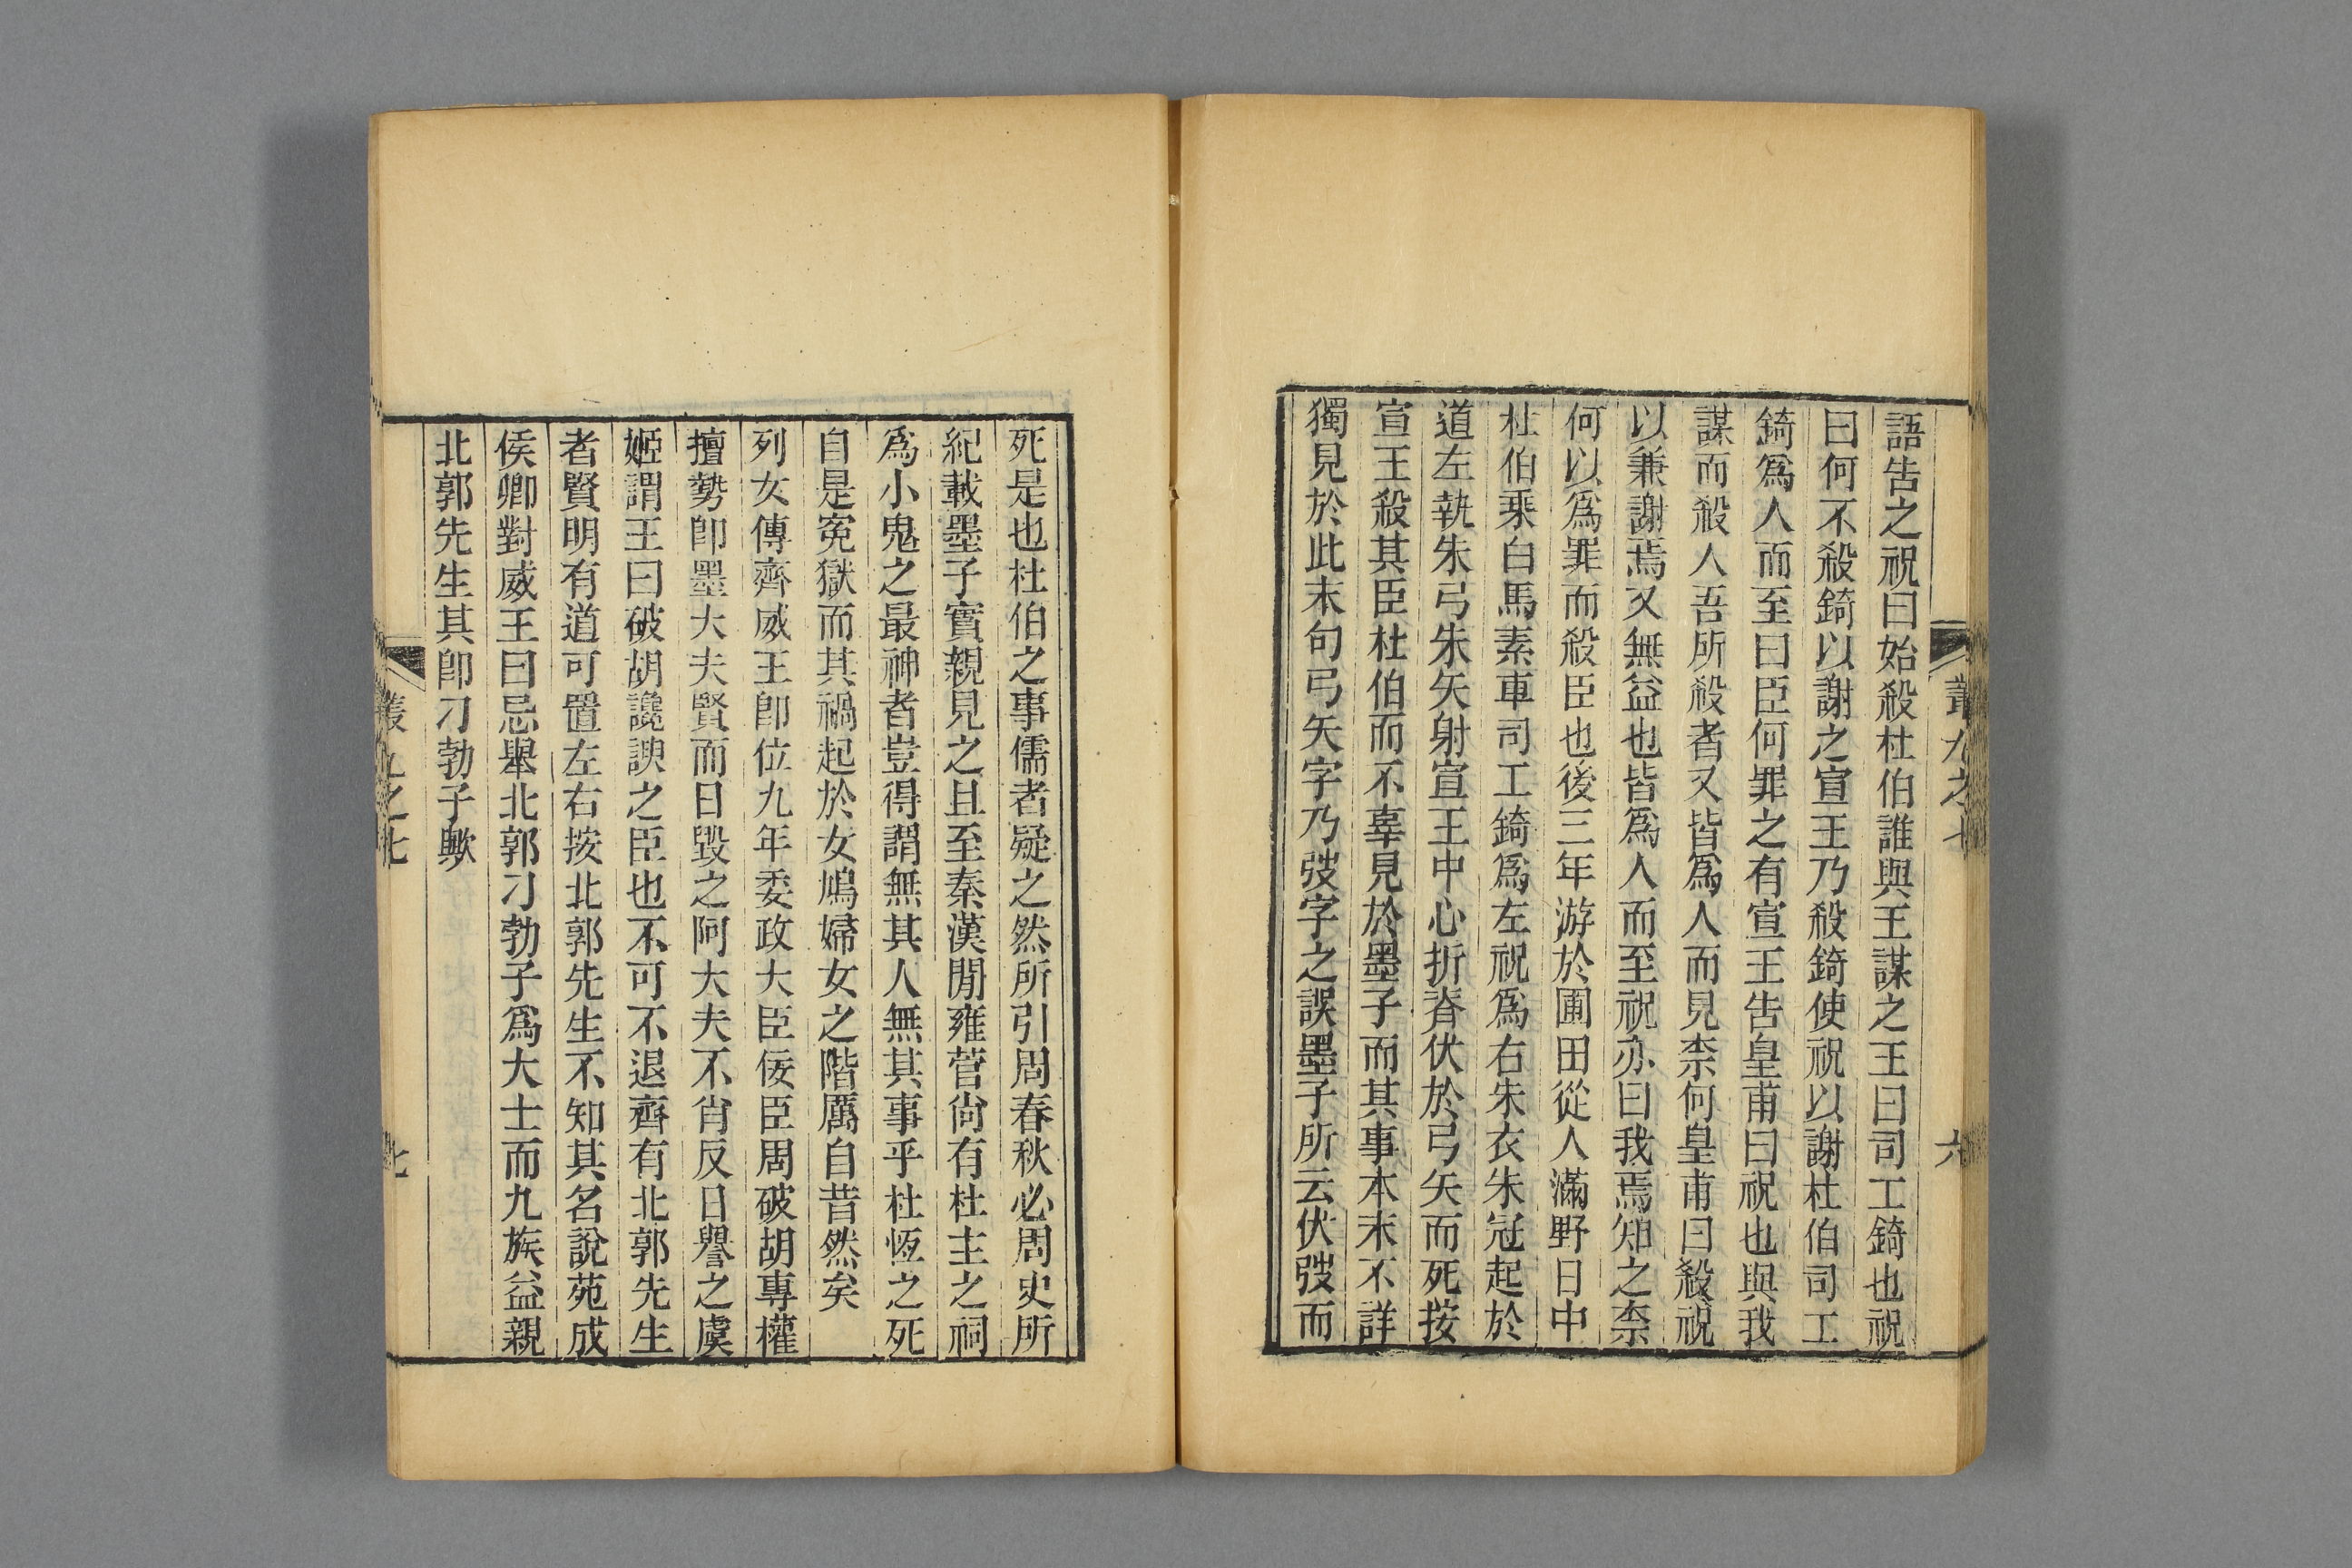 語告之祝曰始殺杜伯誰與王謀之王曰司工錡也祝
曰何不殺錡以謝之宣王乃殺錡使祝以謝杜伯司工
錡爲人而至曰臣何罪之有宣王告皇甫曰祝也與我
謀而殺人吾所殺者又皆爲人而見柰何皇甫曰殺祝
以兼謝焉又無益也皆爲人而至祝亦曰我焉知之柰
何以爲罪而殺臣也後三年游於圃田從人滿野日中
杜伯乗白馬素車司工錡爲左祝爲右朱衣朱冠起於
道左執朱弓朱矢射宣王中心折脊伏於弓矢而死按
宣王殺其臣杜伯而不辜見於墨子而其事本末不詳
獨見於此末句弓矢字乃弢字之誤墨子所云伏弢而
叢九之七
六
死是也杜伯之事儒者疑之然所引周春秋必周史所
紀載墨子實親見之且至秦漢閒雍菅尙有杜主之祠
爲小鬼之最神者豈得謂無其人無其事乎杜恆之死
自是寃獄而其禍起於女鳩婦女之階厲自昔然矣
列女傳齊威王卽位九年委政大臣佞臣周破胡專權
擅勢卽墨大夫賢而日毀之阿大夫不肖反日譽之虞
姬謂王曰破胡讒諛之臣也不可不退齊有北郭先生
者賢明有道可置左右按北郭先生不知其名說苑成
侯卿對威王曰忌舉北郭刁勃子爲大士而九族益親
北郭先生其卽刁勃子歟
叢九之七
七